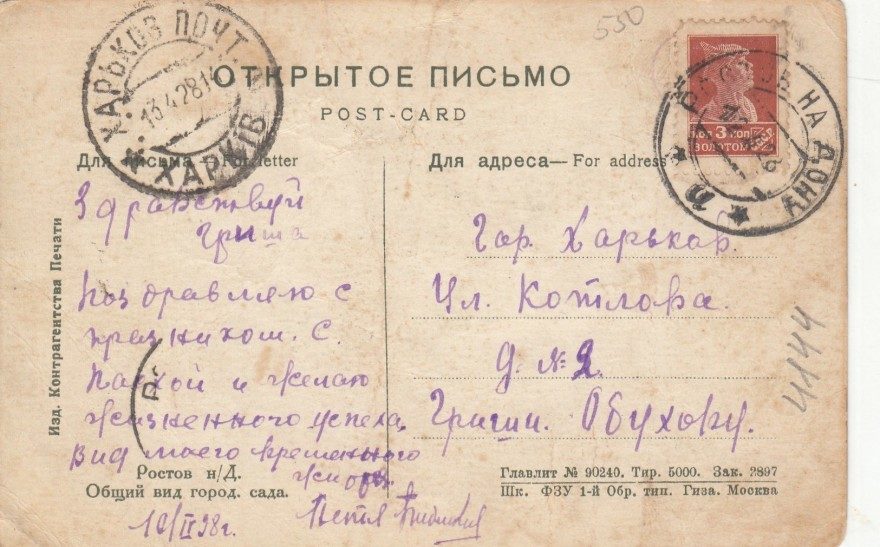 530
ХАРЬКОВ ПОЧТ.
13.4.28
ХАРКІВ
ОТКРЫТОЕ ПИСЬМО
POST-CARD
КОП 3 КОП
ЗОЛОТОМ
НА ДОНУ
Для письма — For letter
Для адреса — For address
Здравствуй
Гриша
Поздравляю с
праздником. С.
Пасхой и желаю
жизненного успеха.
Вид моего временного
Гор. Харьков.
Ул. Котлова.
д. № 2.
Гриши. Обухову.
4144
Изд. Контрагентства Печати
Ростов н/Д.
Общий вид город. сада.
10/IV 28г.
Петя
Главлит № 90240. Тир. 5000. Зак. 2897
Шк. ФЗУ 1-й Обр. тип. Гиза. Москва